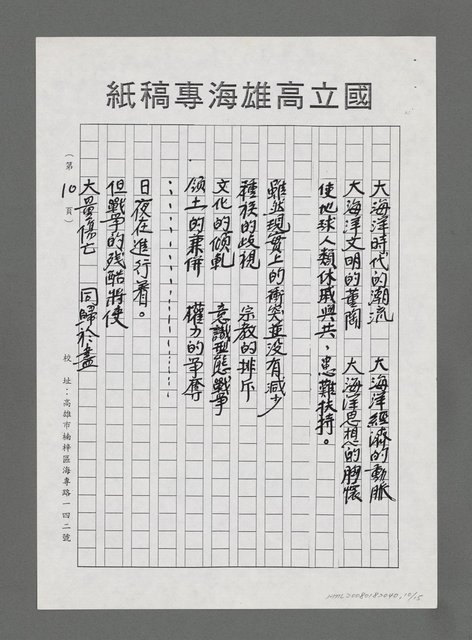 國立高雄海專稿紙
大海洋時代的潮流　大海洋經濟的動脈
大海洋文明的薰陶　大海洋思想的胸懷
使地球人類休戚與共，患難扶持。
雖然現實上的衝突並没有減少
種族的歧視　宗教的排斥
文化的傾軋　意識型態戰爭
領土的兼併　權力的爭奪
…………………………
日夜在進行着。
但戰爭的残酷將使
大量傷亡　同歸於盡
（第10頁）
校址：高雄市楠梓區海專路一四二號
NML20080182040, 10/15